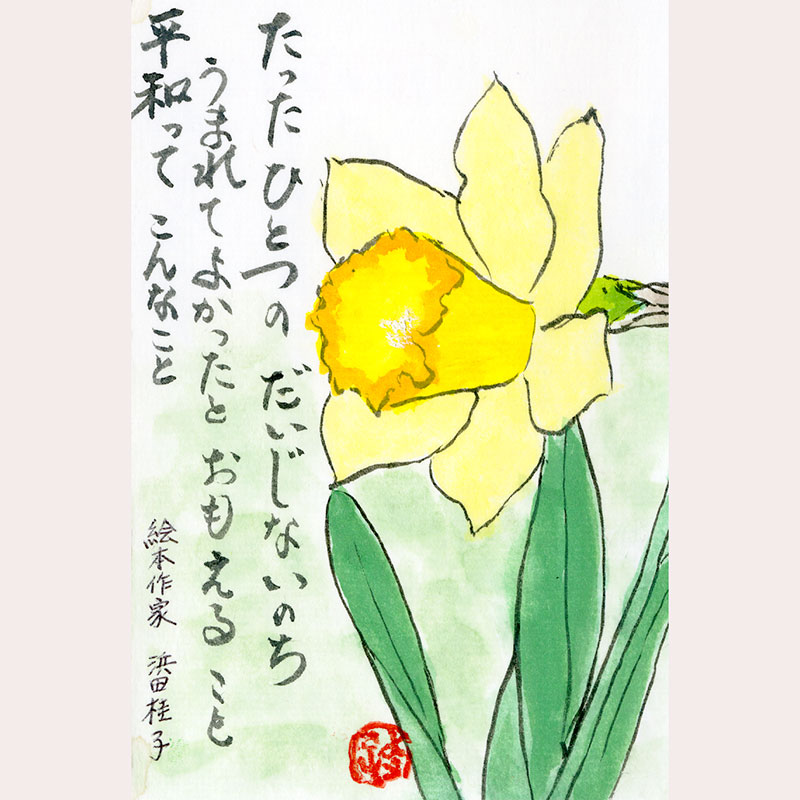 たった ひとつの だいじな いのち
うまれて よかったと おもえる こと
平和って こんなこと
絵本作家 浜田桂子